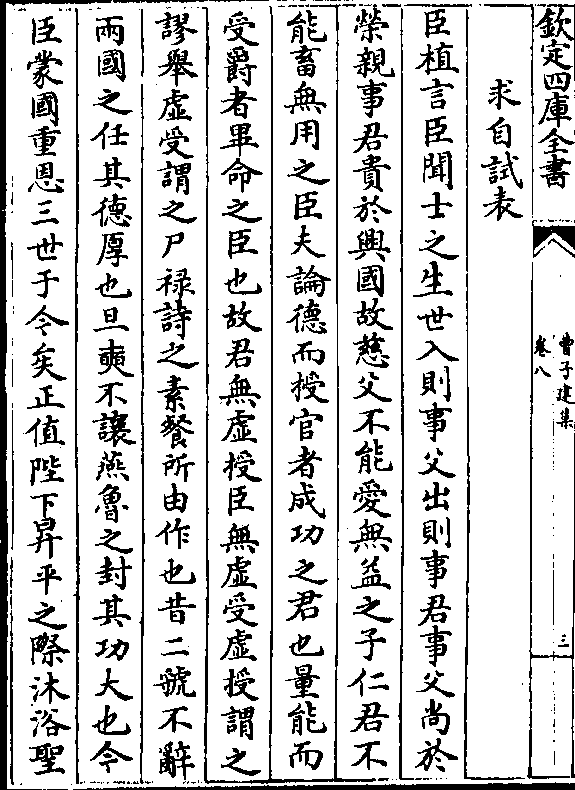 欽定四庫全書
曹子建集
卷八
三
求自試表
臣植言臣聞士之生世入則事父出則事君事父尚於
榮親事君貴於興國故慈父不能愛無益之子仁君不
能畜無用之臣夫論德而授官者成功之君也量能而
受爵者畢命之臣也故君無虚授臣無虚受虚授謂之
謬舉虚受謂之尸禄詩之素餐所由作也昔二虢不辭
兩國之任其德厚也旦奭不讓燕魯之封其功大也今
臣蒙國重恩三世于今矣正值陛下昇平之際沐浴聖